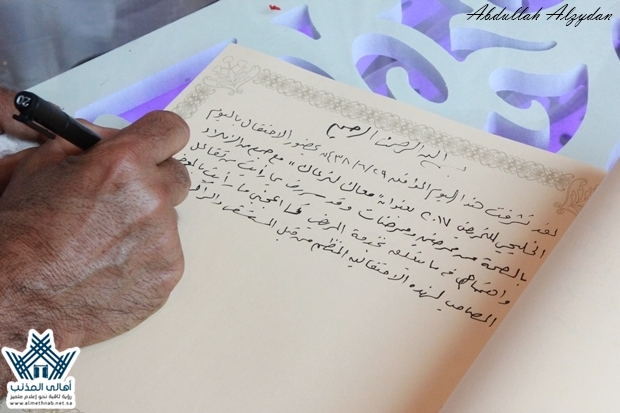 Abdullah Alzydan
بسم الله الرحمن الرحيم
لقد تشرفت هذا اليوم الموافق ١٤٣٨/٦/٢٩هـ بحضور الاحتفال باليوم
الخليجي للتمريض ٢٠١٧ بعنوان "معاك لنرعاك" مع جمع من الزملاء
بالصحة من ممرضين وممرضات وقد سررت بما رأيت من تفاعل
واهتمام في ما يتعلق بخدمة المريض كما أعجبني ما رأيت بالمعرض
المصاحب لهذه الاحتفالية المنظم من قبل المستشفى
20
أهالي المذنب
رؤية ثاقبة نحو إعلام متميز
www.almethnab.net.sa